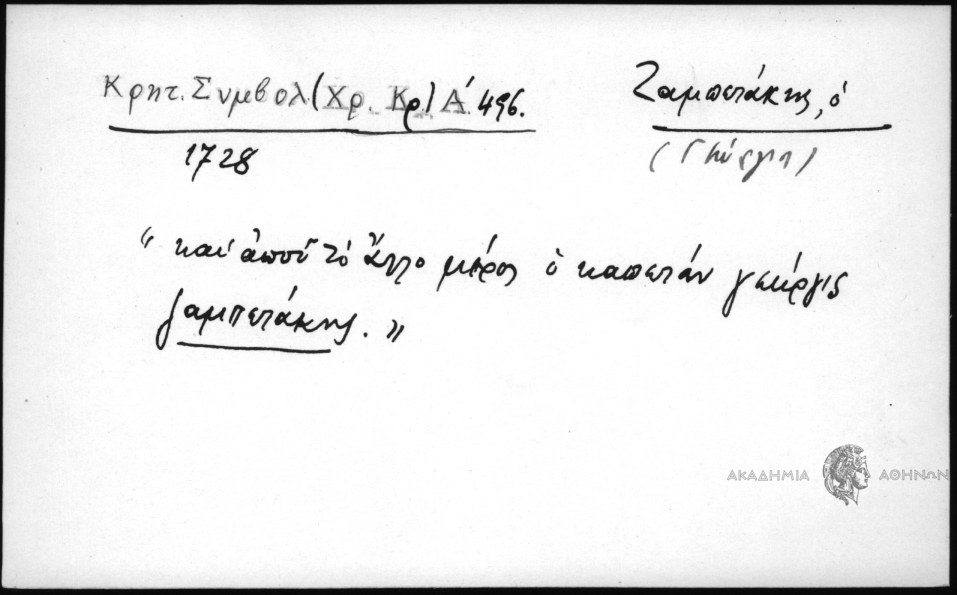 Κρητ. Συμβολ (Χρ. Κρ) Α΄ 496.
1728
Ζαμπετάκης, ὁ
(Γιώργης)
“ καὶ ἀποῦ τὸ ἄλλο μέρος ὁ καπετάν γεώργις
ζαμπετάκης. ”
ΑΚΑΔΗΜΙΑ ΑΘΗΝΩΝ